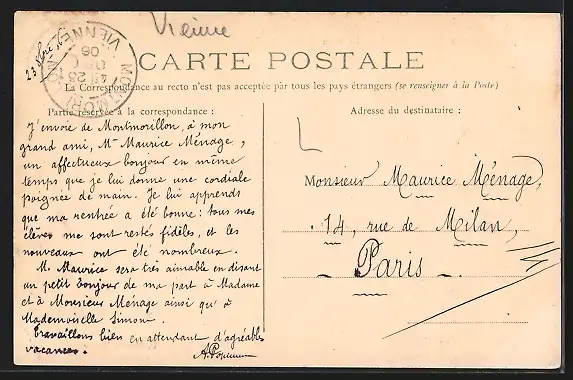 Vienne
23 8bre 10
MONTMORILLON
VIENNE
23
CARTE POSTALE
La Correspondance au recto n'est pas acceptée par tous les pays étrangers (se renseigner à la Poste)
Partie réservée à la correspondance :
J'envoie de Montmorillon, à mon
grand ami, Mr Maurice Ménage,
un affectueux bonjour en même
temps que je lui donne une cordiale
poignée de main. Je lui apprends
que ma rentrée a été bonne : tous mes
élèves me sont restés fidèles, et les
nouveaux ont été nombreux.
M. Maurice sera très aimable en disant
un petit bonjour de ma part à Madame
et à Monsieur Ménage ainsi qu'à
Mademoiselle Simon.
Travaillons bien en attendant d'agréables
vacances.
Adresse du destinataire :
Monsieur Maurice Ménage,
14, rue de Milan,
Paris